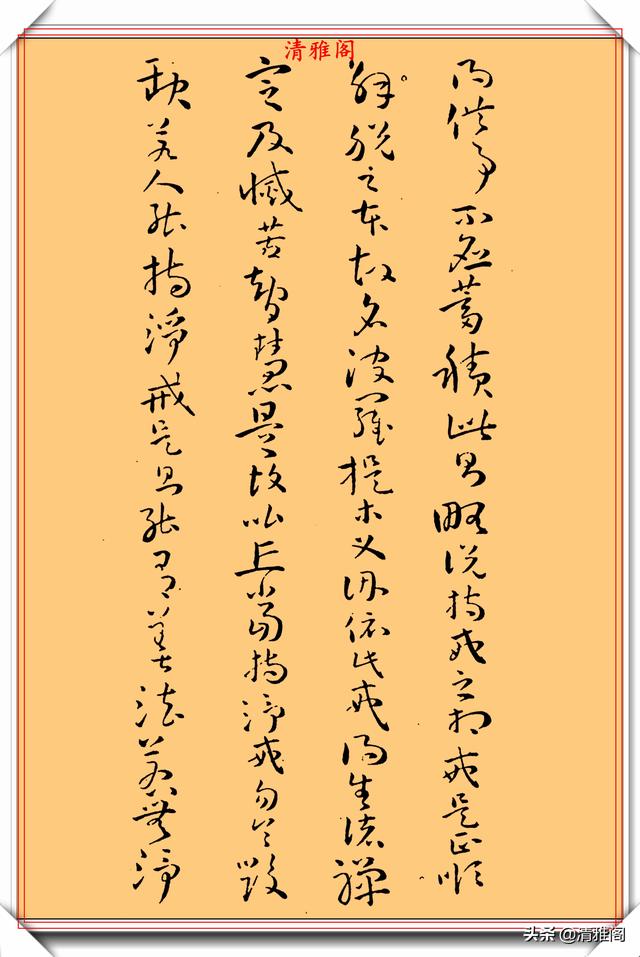 清雅阁
得供事不應蓄積此則略說持戒之相戒是正順
解脫之本故名波羅提木叉因依此戒得生諸禪
定及滅苦智慧是故比丘當持淨戒勿令毀
缺若人能持淨戒是則能有善法若無淨
头条@清雅阁